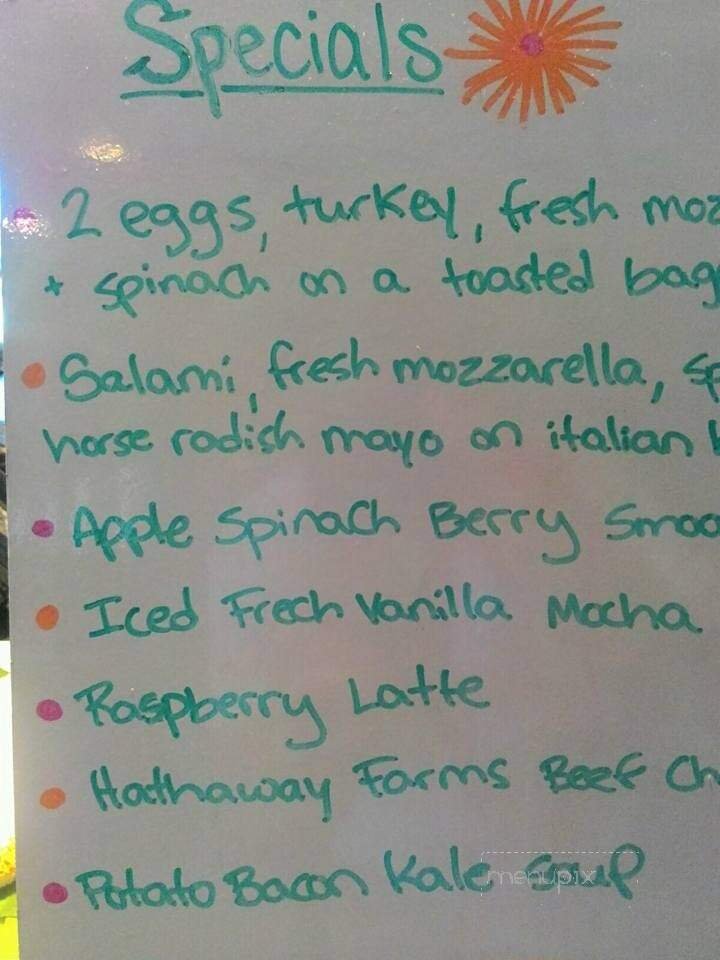 Specials
2 eggs, turkey, fresh moz
+ spinach on a toasted bag
Salami, fresh mozzarella, sp
horse radish mayo on italian
Apple Spinach Berry Smoo
Iced Frech Vanilla Mocha
Raspberry Latte
Hathaway Farms Beef Ch
Potato Bacon Kale Soup
menupix